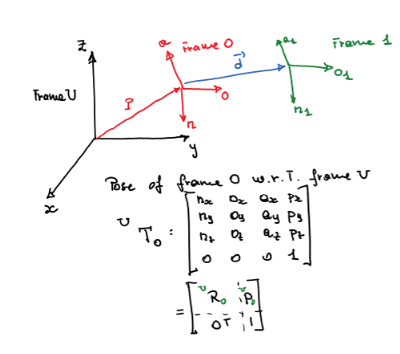 z
a Frame 0
a1 Frame 1
Frame U
P
d
o
o1
n
n1
y
x
Pose of frame 0 w.r.T. frame U
U T0 = [ nx ox ax Px
ny oy ay Py
nz oz az Pz
0 0 0 1 ]
= [ U R0 U P0
0T 1 ]